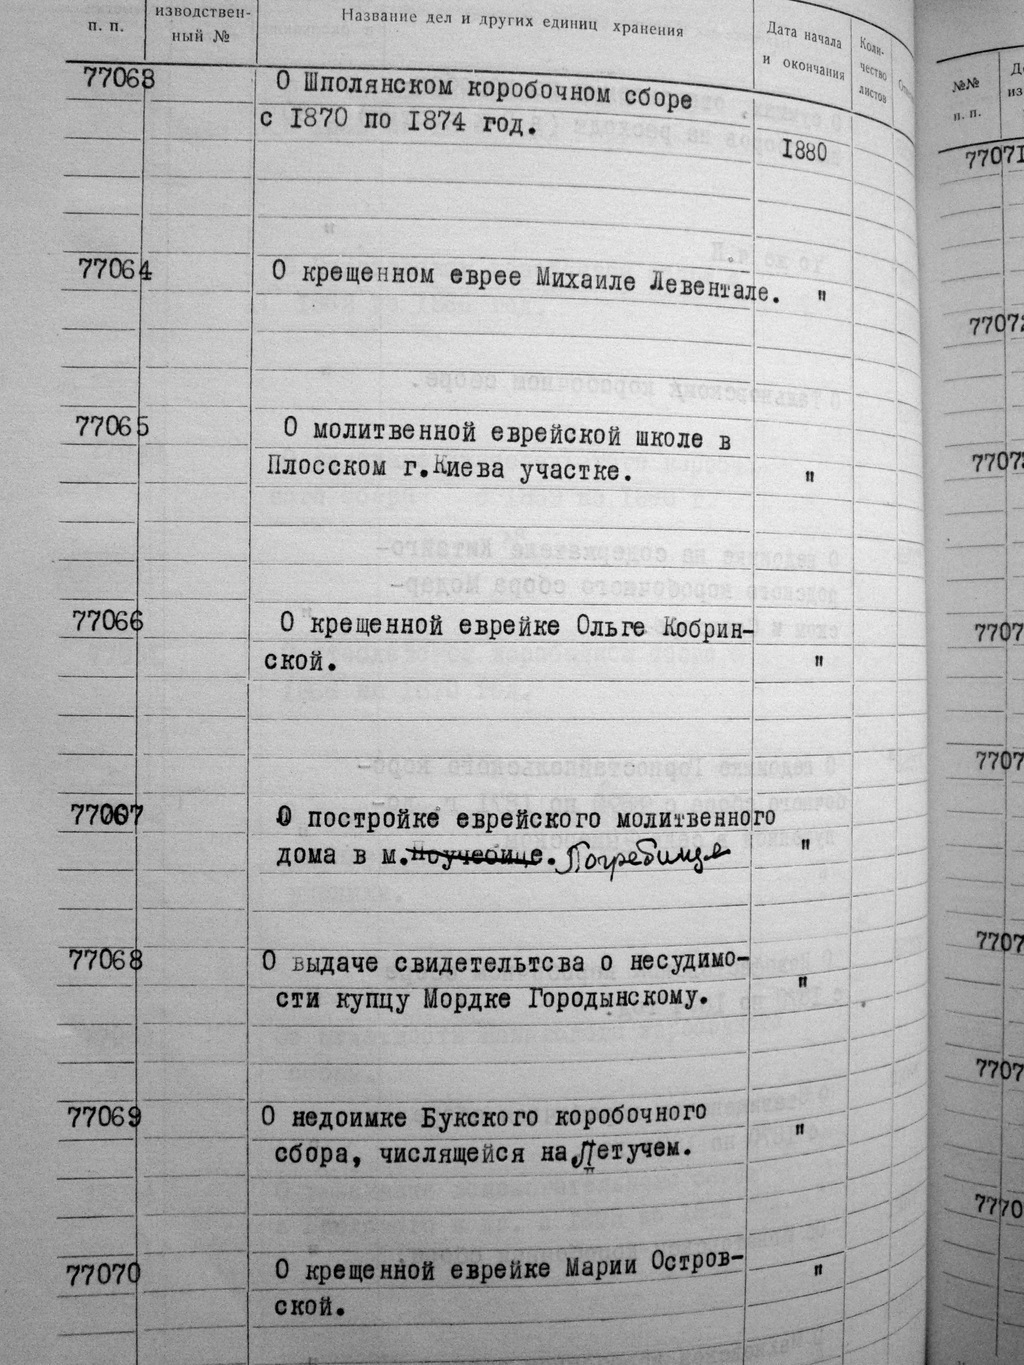 п. п.
изводствен-
ный №
Название дел и других единиц хранения
Дата начала
и окончания
Коли-
чество
листов
77063
О Шполянском коробочном сборе
с 1870 по 1874 год.
1880
77064
О крещенном еврее Михаиле Левентале. "
77065
О молитвенной еврейской школе в
Плосском г.Киева участке. "
77066
О крещенной еврейке Ольге Кобрин-
ской. "
77067
О постройке еврейского молитвенного
дома в м. Погребище "
77068
О выдаче свидетельтсва о несудимо-
сти купцу Мордке Городынскому. "
77069
О недоимке Букского коробочного
сбора, числящейся на Летучем. "
77070
О крещенной еврейке Марии Остров-
ской. "
№№
п. п.
77071